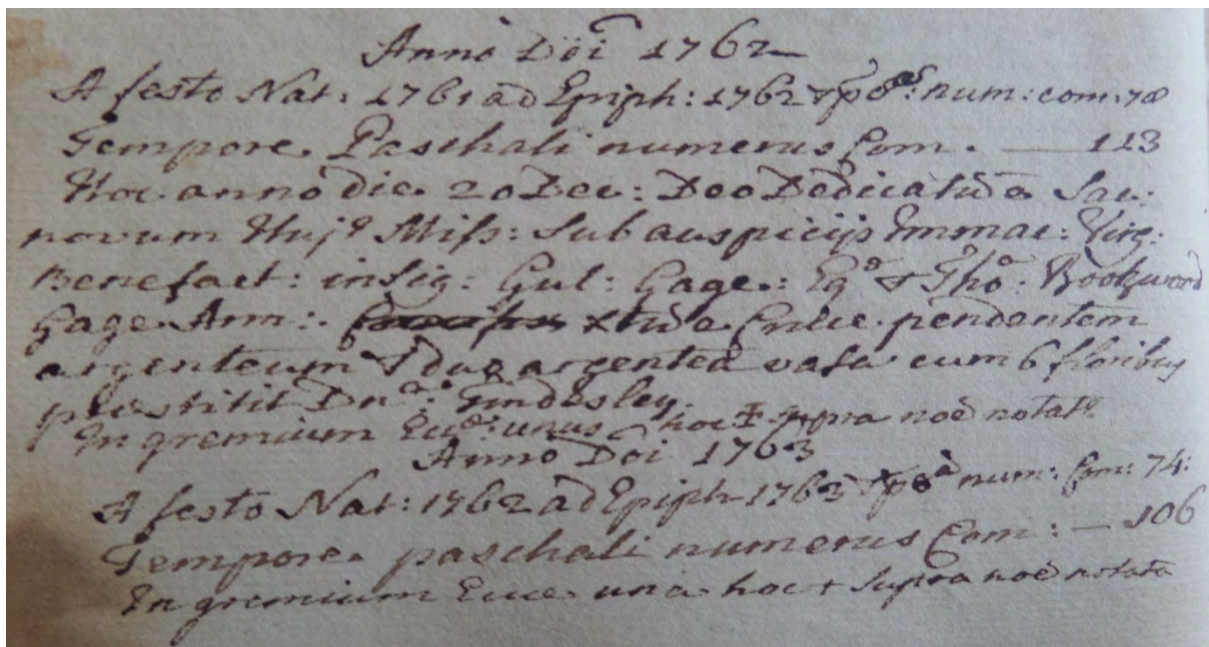 Anno Dōi 1762
A festo Nat: 1761 ad Epiph: 1762 & p 8as: num: com: 78
Tempore Paschali numerus Com. — 113
Hoc anno die 20 Dec: Deo Dedicatū ē Sac:
novum Hujs Miss: Sub auspicijs Immac: Virg:
Benefact: insig: Gul: Gage: Eqs & Tho: Bookwood
Gage Arm: Xtū e Cruce pendentem
argenteum & duo argentea vasa cum 6 floribus
præstitit Dna: Tindesley.
In gremium Eccæ: unus hoc ‡ supra noē notats
Anno Dōi 1763
A festo Nat: 1762 ad Epiph 1763 & p 8ā num: Com: 74:
Tempore paschali numerus Com: — 106
In gremium Ecce una hoc + supra noē notata